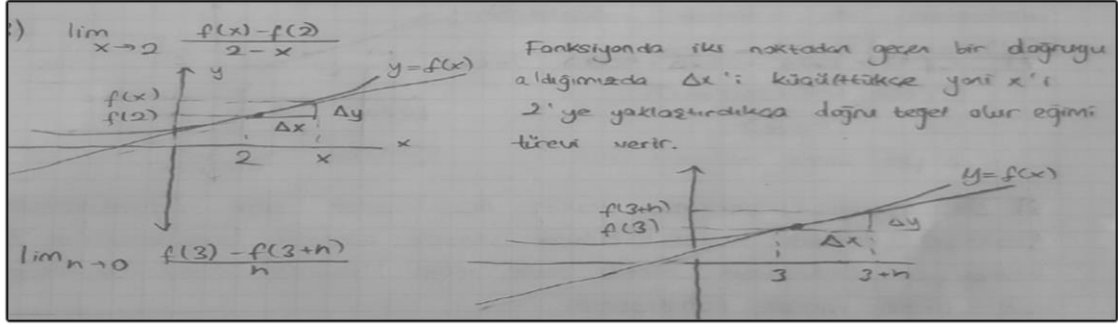 :) lim x→2 f(x)-f(2) / 2-x
y
y=f(x)
f(x)
f(2)
Δy
Δx
2 x x
Fonksiyonda iki noktadan geçen bir doğruyu
aldığımızda Δx'i küçülttükçe yani x'i
2'ye yaklaştırdıkça doğru teğet olur eğimi
türevi verir.
lim h→0 f(3)-f(3+h) / h
y=f(x)
f(3+h)
f(3)
Δy
Δx
3 3+h